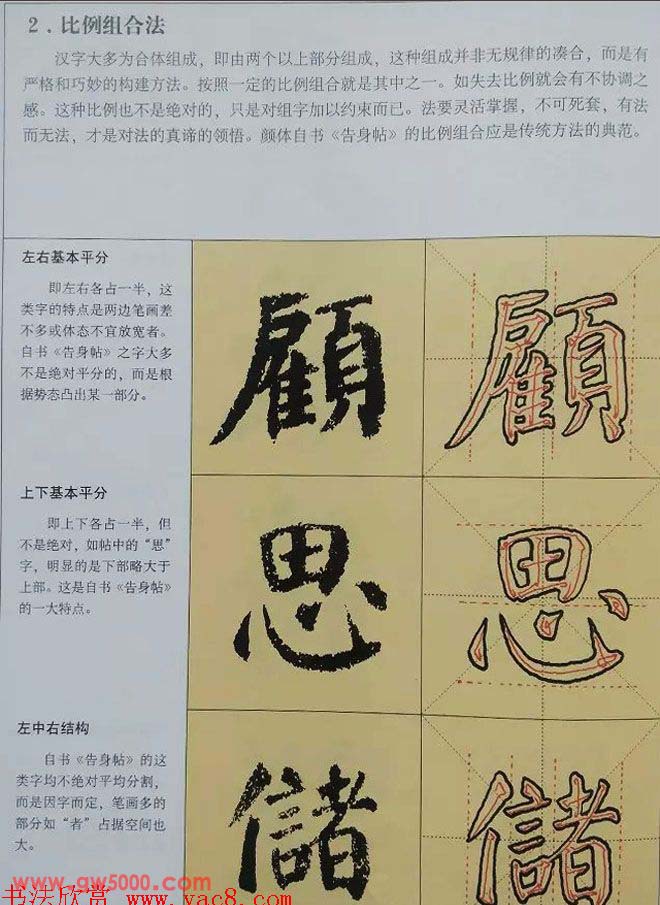 2．比例组合法
汉字大多为合体组成，即由两个以上部分组成，这种组成并非无规律的凑合，而是有
严格和巧妙的构建方法。按照一定的比例组合就是其中之一。如失去比例就会有不协调之
感。这种比例也不是绝对的，只是对组字加以约束而已。法要灵活掌握，不可死套，有法
而无法，才是对法的真谛的领悟。颜体自书《告身帖》的比例组合应是传统方法的典范。
左右基本平分
即左右各占一半，这
类字的特点是两边笔画差
不多或体态不宜放宽者。
自书《告身帖》之字大多
不是绝对平分的，而是根
据势态凸出某一部分。
顧 顧
上下基本平分
即上下各占一半，但
不是绝对，如帖中的“思”
字，明显的是下部略大于
上部。这是自书《告身帖》
的一大特点。
思 思
左中右结构
自书《告身帖》的这
类字均不绝对平均分割，
而是因字而定，笔画多的
部分如“者”占据空间也
大。
儲 儲
www.gw5000.com
书法欣赏 www.yac8.com